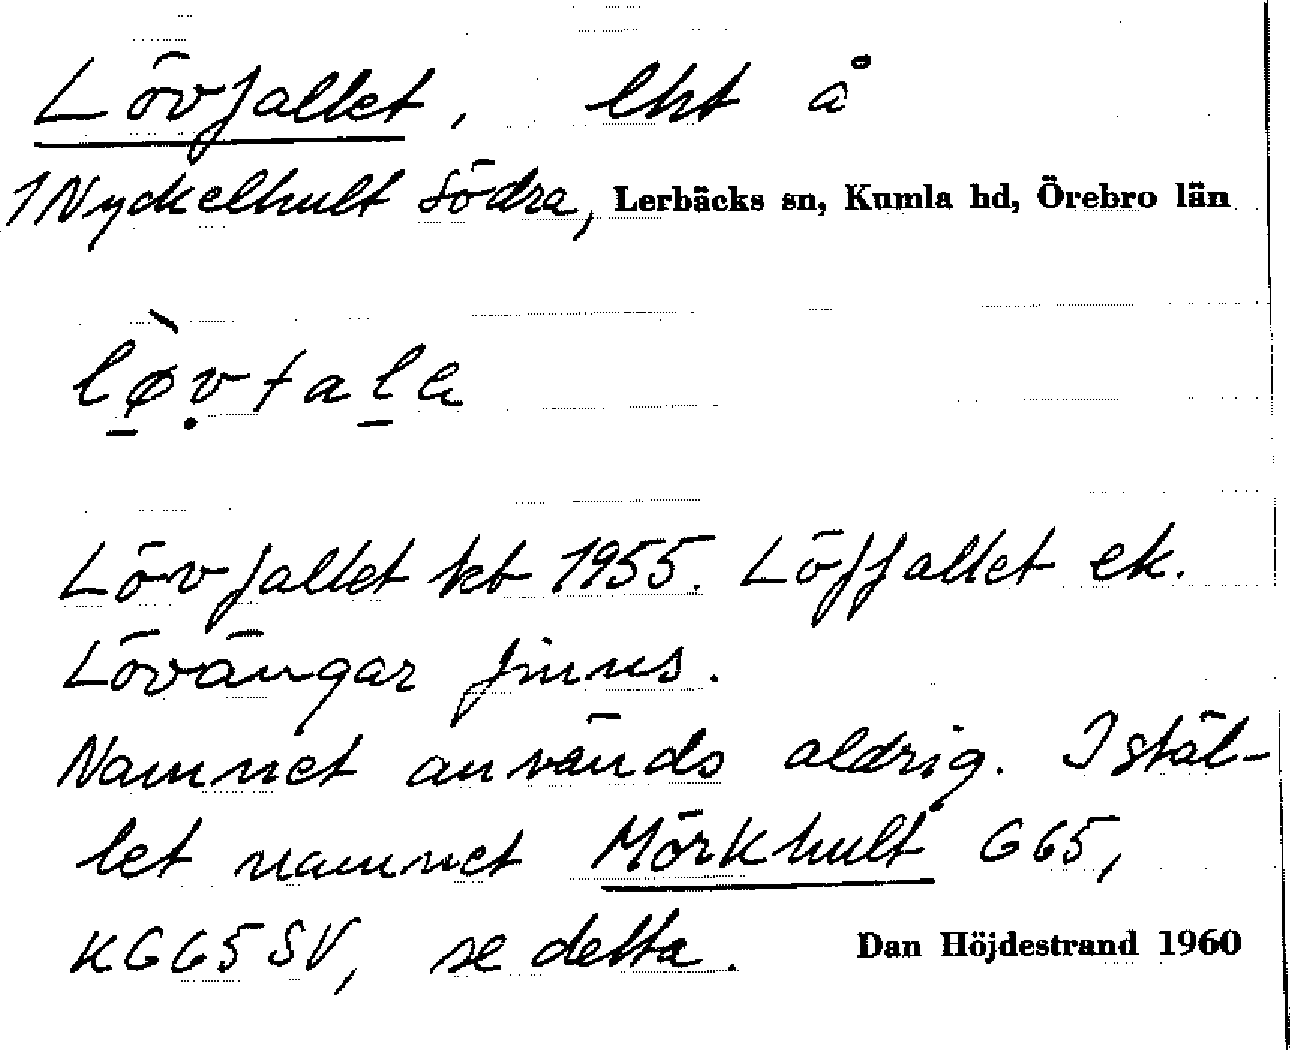 Lövfallet, lht å
1 Nyckelhult Södra, Lerbäcks sn, Kumla hd, Örebro län
Lövfallet kb 1955. Löffallet ek.
Lövängar finns.
Namnet används aldrig. Istäl-
let namnet Mörkhult GG5,
KGG5SV, se detta. Dan Höjdestrand 1960